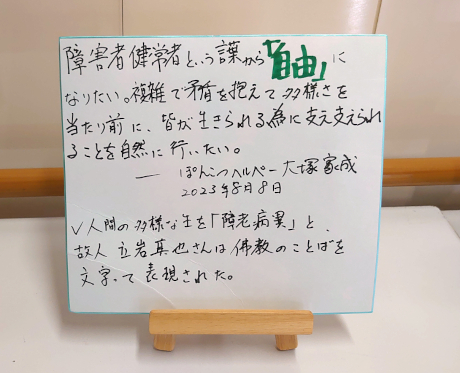 障害者健常者という言葉から「自由」に
なりたい。複雑で矛盾を抱えて多様さを
当たり前に、皆が生きられる為に支え支えられ
ることを自然に行いたい。
― ぽんこつヘルパー大塚家成
2023年8月8日
✓人間の多様な生を「障老病異」と、
故人 立岩真也さんは佛教のことばを
文字って表現された。